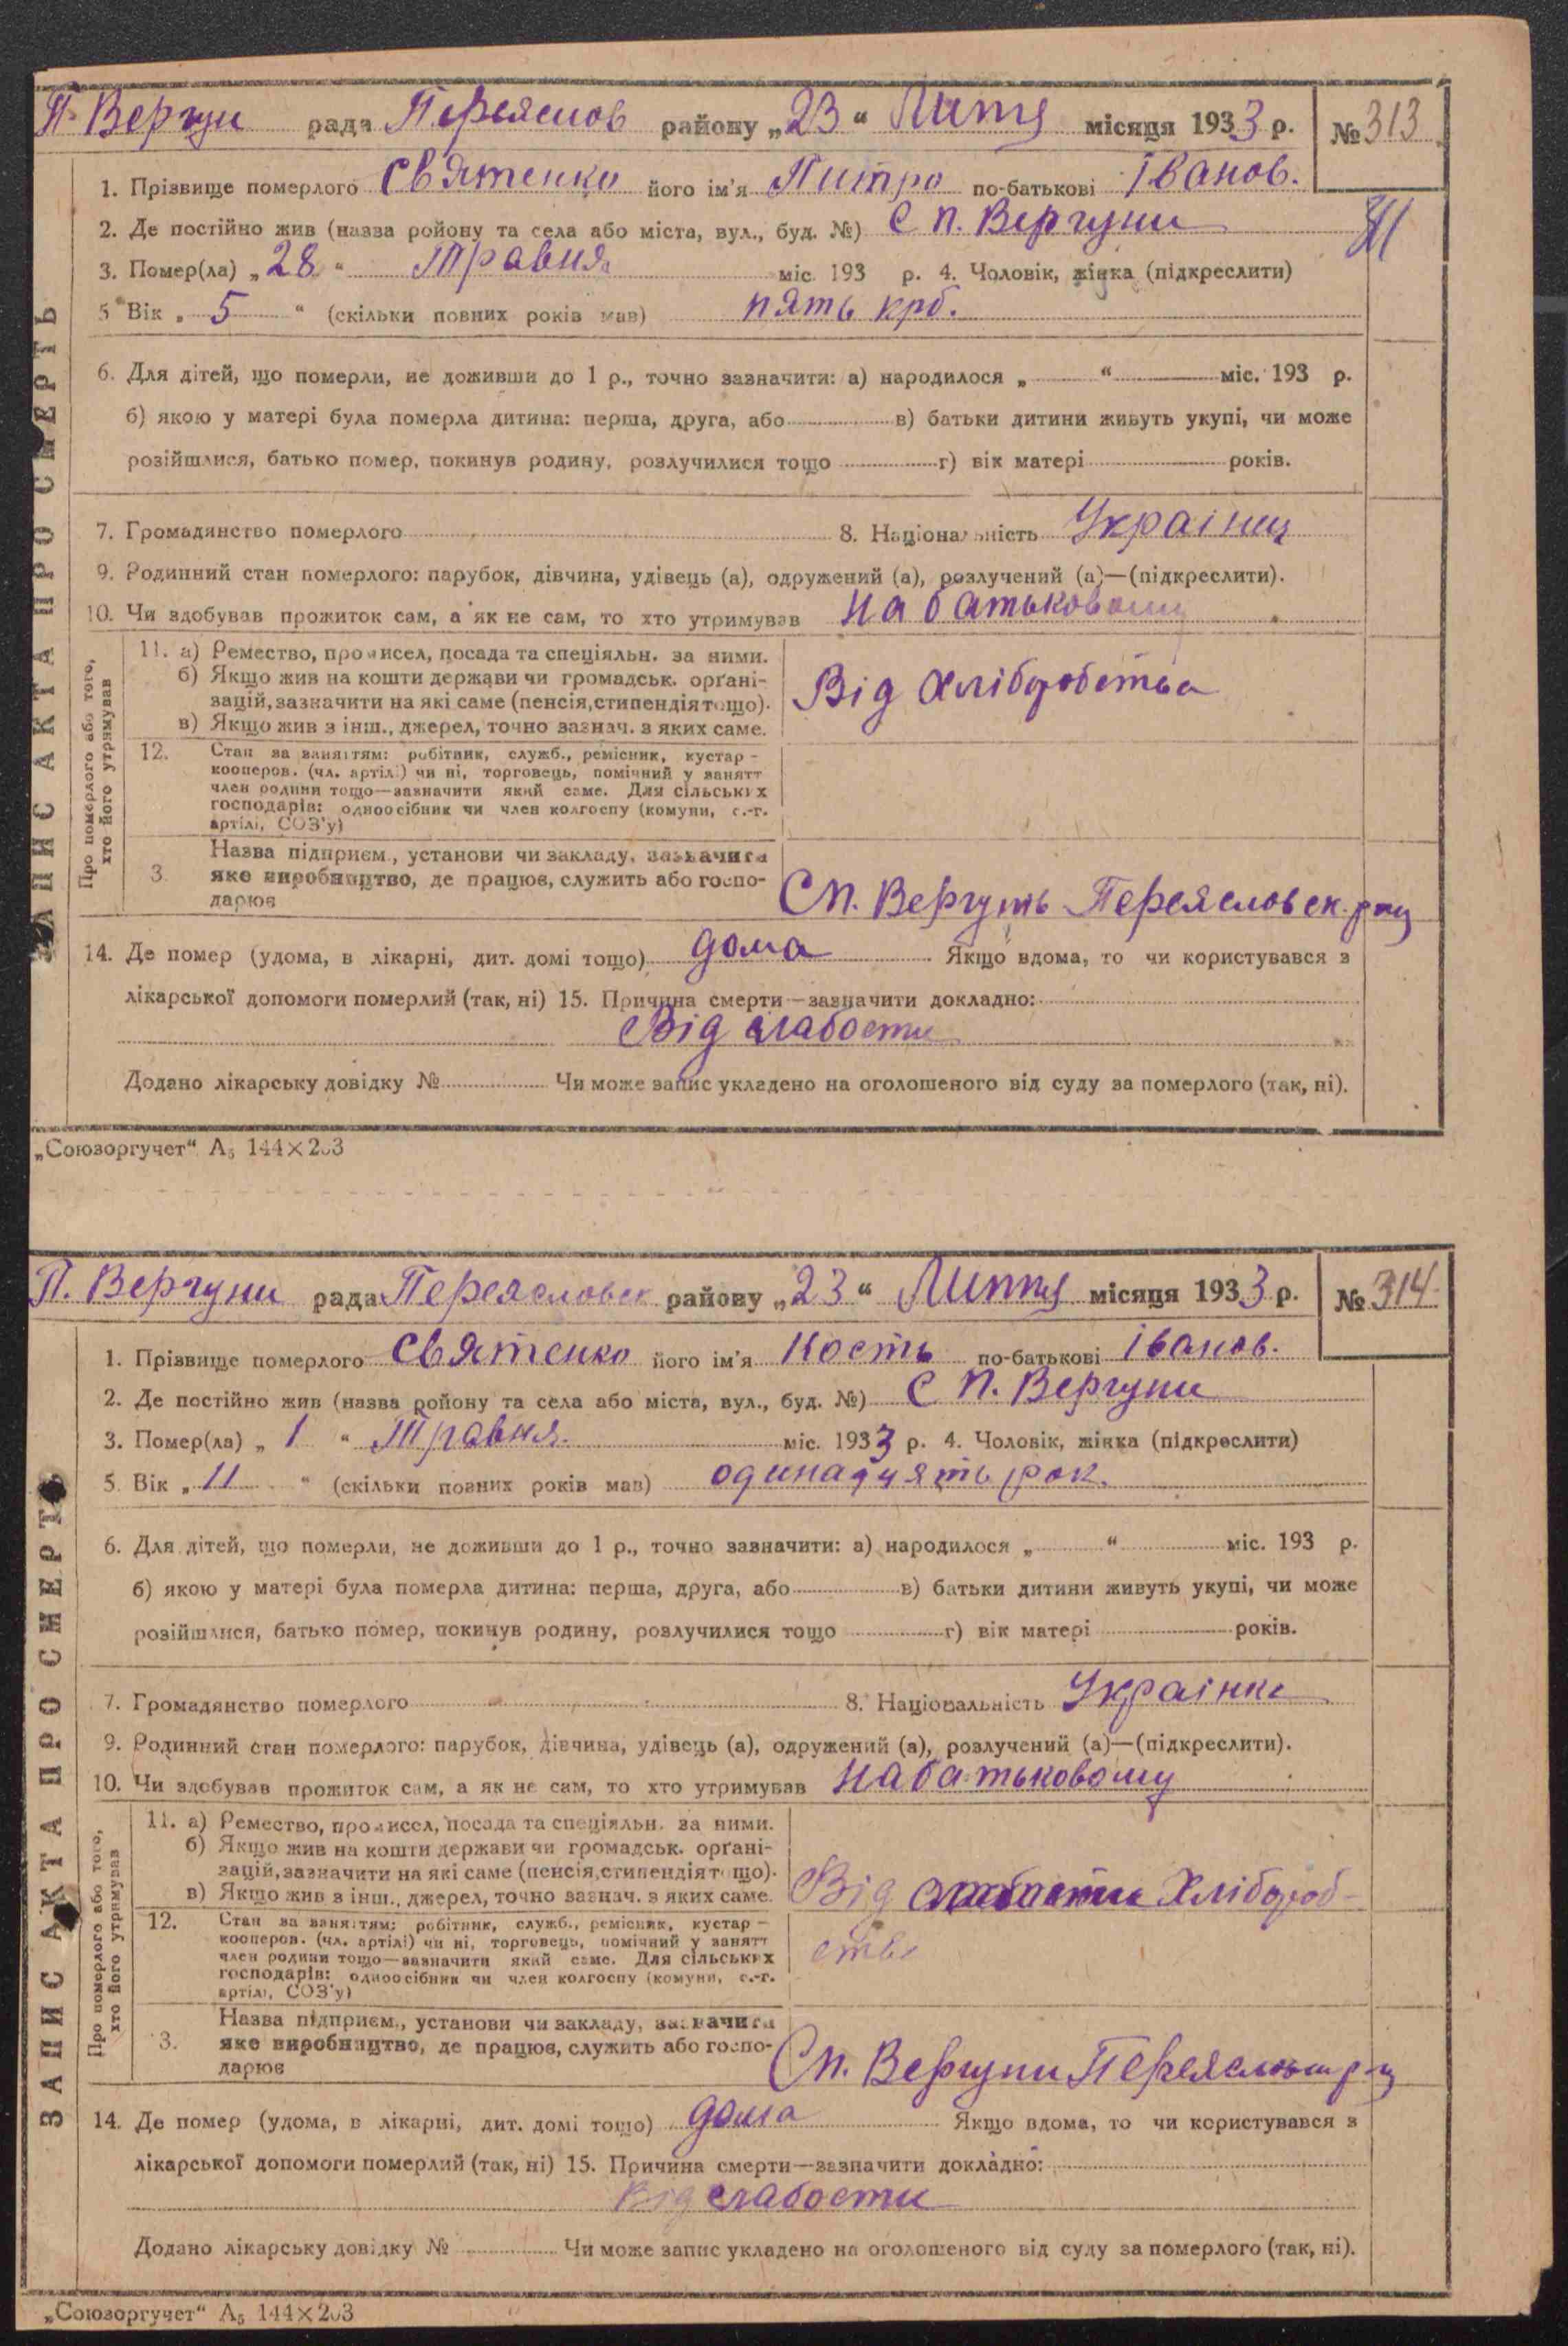 П. Вергуни рада Переяслов району „23“ Липня місяця 1933 р. № 313
1. Прізвище померлого Святенко його ім'я Питро по-батькові Іванов.
2. Де постійно жив (назва ройону та села або міста, вул., буд. №) С П. Вергуни
3. Помер(ла) „28“ Травня міс. 193 р. 4. Чоловік, жінка (підкреслити)
5 Вік „5“ (скільки повних років мав) пять
6. Для дітей, що померли, не доживши до 1 р., точно зазначити: а) народилося „ “ міс. 193 р.
б) якою у матері була померла дитина: перша, друга, або в) батьки дитини живуть укупі, чи може
розійшлися, батько помер, покинув родину, розлучилися тощо г) вік матері років.
7. Громадянство померлого 8. Національність Украінец
9. Родинний стан померлого: парубок, дівчина, удівець (а), одружений (а), розлучений (а)—(підкреслити).
10. Чи здобував прожиток сам, а як не сам, то хто утримував На батьковому
ЗАПИС АКТА ПРО СМЕРТЬ
Про померлого або того, хто його утримував
11. а) Ремество, промисел, посада та спеціяльн. за ними.
б) Якщо жив на кошти держави чи громадськ. орґані-
зацій, зазначити на які саме (пенсія, стипендія тощо).
в) Якщо жив з інш., джерел, точно зазнач. з яких саме.
Від Хліборобства
12. Стан за заняттям: робітник, служб., ремісник, кустар -
кооперов. (чл. артілі) чи ні, торговець, помічний у занятт
член родини тощо—зазначити який саме. Для сільських
господарів: одноосібник чи член колгоспу (комуни, с.-г.
артілі, СОЗ'у)
3. Назва підприєм., установи чи закладу, зазначити
яке виробництво, де працює, служить або госпо-
дарює
С П. Вергунь Переясловск. р-ну
14. Де помер (удома, в лікарні, дит. домі тощо) дома Якщо вдома, то чи користувався з
лікарської допомоги померлий (так, ні) 15. Причина смерти—зазначити докладно:
Від слабости
Додано лікарську довідку № Чи може запис укладено на оголошеного від суду за померлого (так, ні).
„Союзоргучет“ А₅ 144×203
П. Вергуни рада Переясловск району „23“ Липня місяця 1933 р. № 314
1. Прізвище померлого Святенко його ім'я Кость по-батькові Іванов.
2. Де постійно жив (назва ройону та села або міста, вул., буд. №) С П. Вергуни
3. Помер(ла) „1“ Травня міс. 1933 р. 4. Чоловік, жінка (підкреслити)
5. Вік „11“ (скільки повних років мав) одинадцять рок.
6. Для дітей, що померли, не доживши до 1 р., точно зазначити: а) народилося „ “ міс. 193 р.
б) якою у матері була померла дитина: перша, друга, або в) батьки дитини живуть укупі, чи може
розійшлися, батько помер, покинув родину, розлучилися тощо г) вік матері років.
7. Громадянство померлого 8. Національність
9. Родинний стан померлого: парубок, дівчина, удівець (а), одружений (а), розлучений (а)—(підкреслити).
10. Чи здобував прожиток сам, а як не сам, то хто утримував На батьковому
ЗАПИС АКТА ПРО СМЕРТЬ
Про померлого або того, хто його утримував
11. а) Ремество, промисел, посада та спеціяльн. за ними.
б) Якщо жив на кошти держави чи громадськ. орґані-
зацій, зазначити на які саме (пенсія, стипендія тощо).
в) Якщо жив з інш., джерел, точно зазнач. з яких саме.
Від слабости Хлібороб-
ства
12. Стан за заняттям: робітник, служб., ремісник, кустар —
кооперов. (чл. артілі) чи ні, торговець, помічний у занятт
член родини тощо—зазначити який саме. Для сільських
господарів: одноосібник чи член колгоспу (комуни, с.-г.
артілі, СОЗ'у)
3. Назва підприєм., установи чи закладу, зазначити
яке виробництво, де працює, служить або госпо-
дарює
С П. Вергуни р-ну
14. Де помер (удома, в лікарні, дит. домі тощо) дома Якщо вдома, то чи користувався з
лікарської допомоги померлий (так, ні) 15. Причина смерти—зазначити докладно:
Від слабости
Додано лікарську довідку № Чи може запис укладено на оголошеного від суду за померлого (так, ні).
„Союзоргучет“ А₅ 144×203